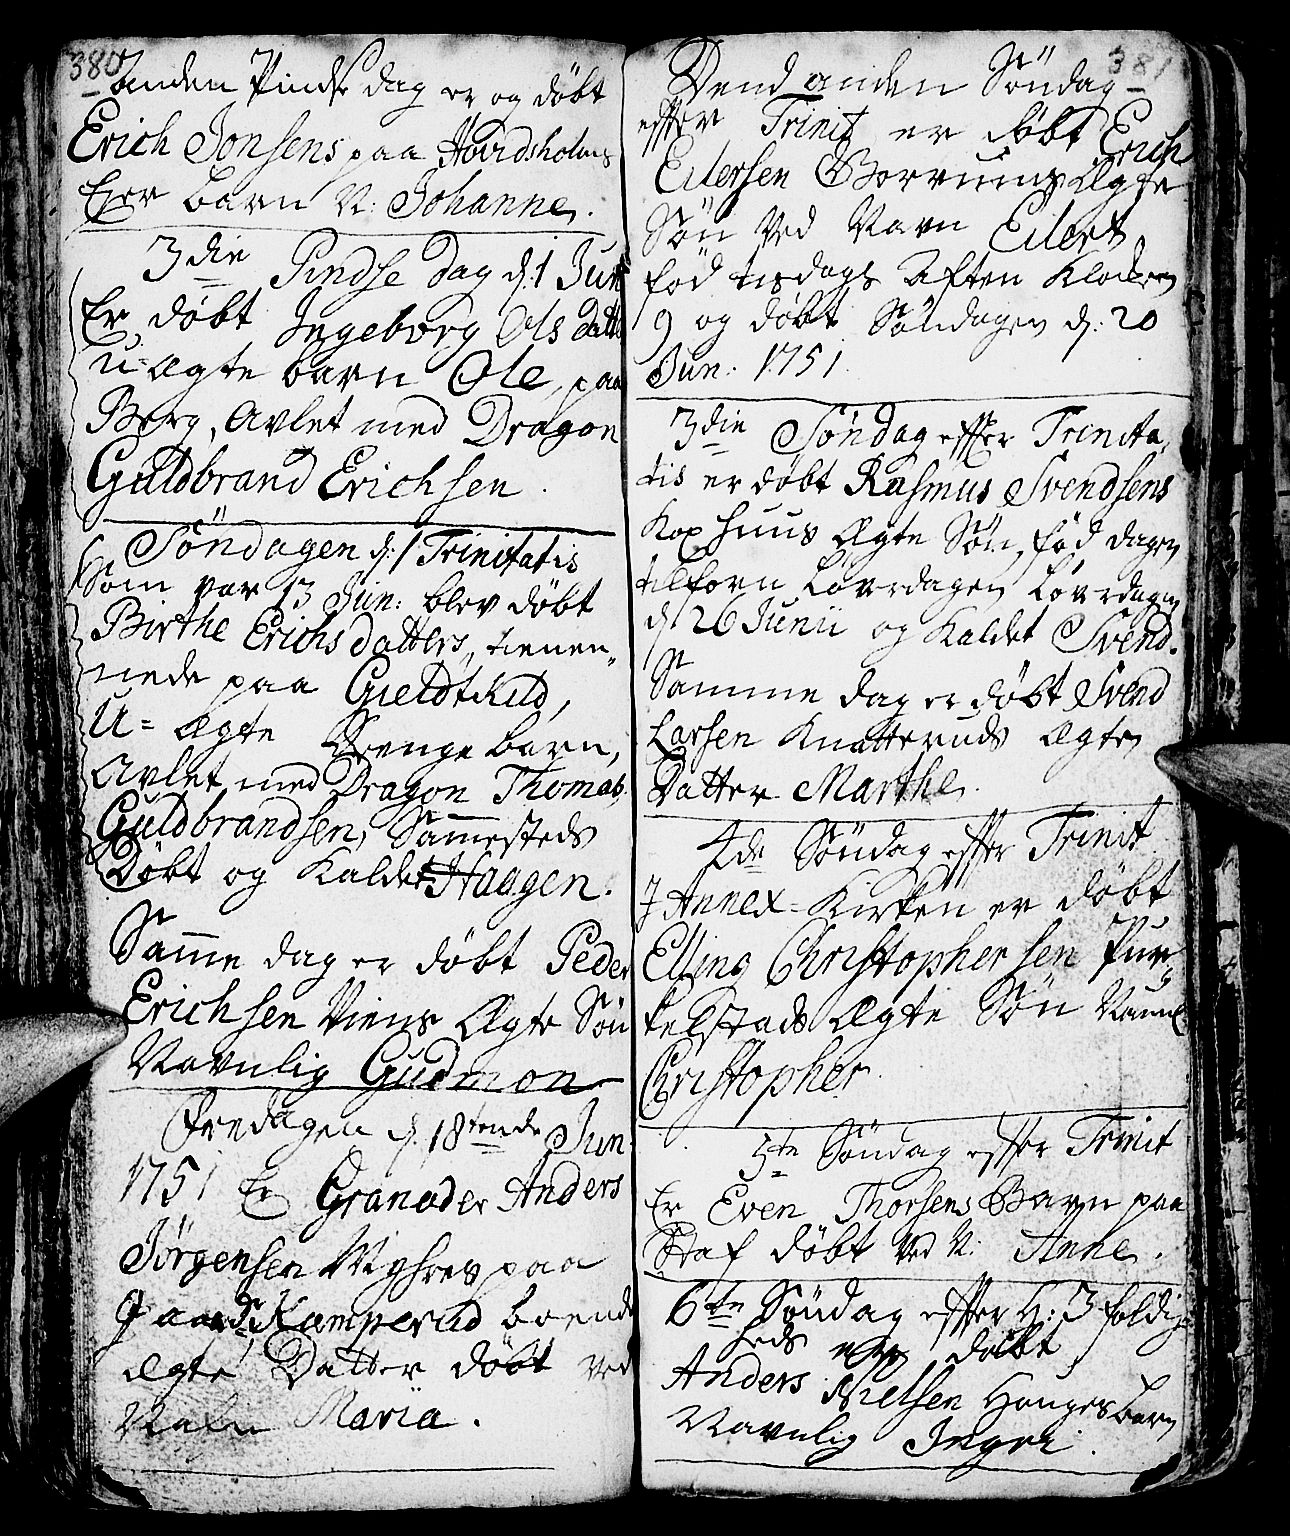 380
anden Pindse dag er og døbt
Erich Jonsens paa Hovidsholms
Ejer barn N: Johanne.
3die Pindse dag d: 1 Jun
Er døbt Ingeborg Ols datt
u-ægte barn Ole, paa
Berg, avlet med Dragon
Guldbrand Erichsen.
Søndagen d: 1 Trinitatis
Som var 13 Jun: blev døbt
Birthe Erichs datters, tienen-
nede paa Gieldtkild,
U=ægte Drenge barn,
Avlet med Dragon Thomas
Guldbrandsen, Sammesteds
Døbt og Kaldet Haagen.
Samme dag er døbt Peder
Erichsen Viens Ægte Søn
Navnlig Gudmon
Fredagen d: 18tende Jun
1751 Er Granader Anders
Jørgensen Myhres paa
Kamperud boende
ægte Datter døbt ved
Navn Maria.
381
Dend anden Søndag
effter Trinit er døbt Erich
Eilersen Borrums Ægte
Søn Ved Navn Eilert,
fød tisdags Aften Klocken
9 og døbt Søndagen d: 20
Jun: 1751.
3die Søndag effter Trinita
tis er døbt Rasmus Svendsens
Koxhuus Ægte Søn, fød dagen
tilforn Løverdagen Løverdagen
d 26 Junii og Kaldet Svend.
Samme dag er døbt Svend
Larsen Knatteruds Ægte
Datter Marthe.
4de Søndag effter Trinit
J Annex-Kirken er døbt
Elling Christophersen Pur-
kelstads Ægte Søn Navnl
Christopher.
5te Søndag effter Trinit
Er Even Thorsens Barn paa
Staf døbt Ved N: Anne.
6te Søndag effter H: 3 foldig-
heds er døbt
Anders Nielsen Houges barn
Navnlig Ingri.